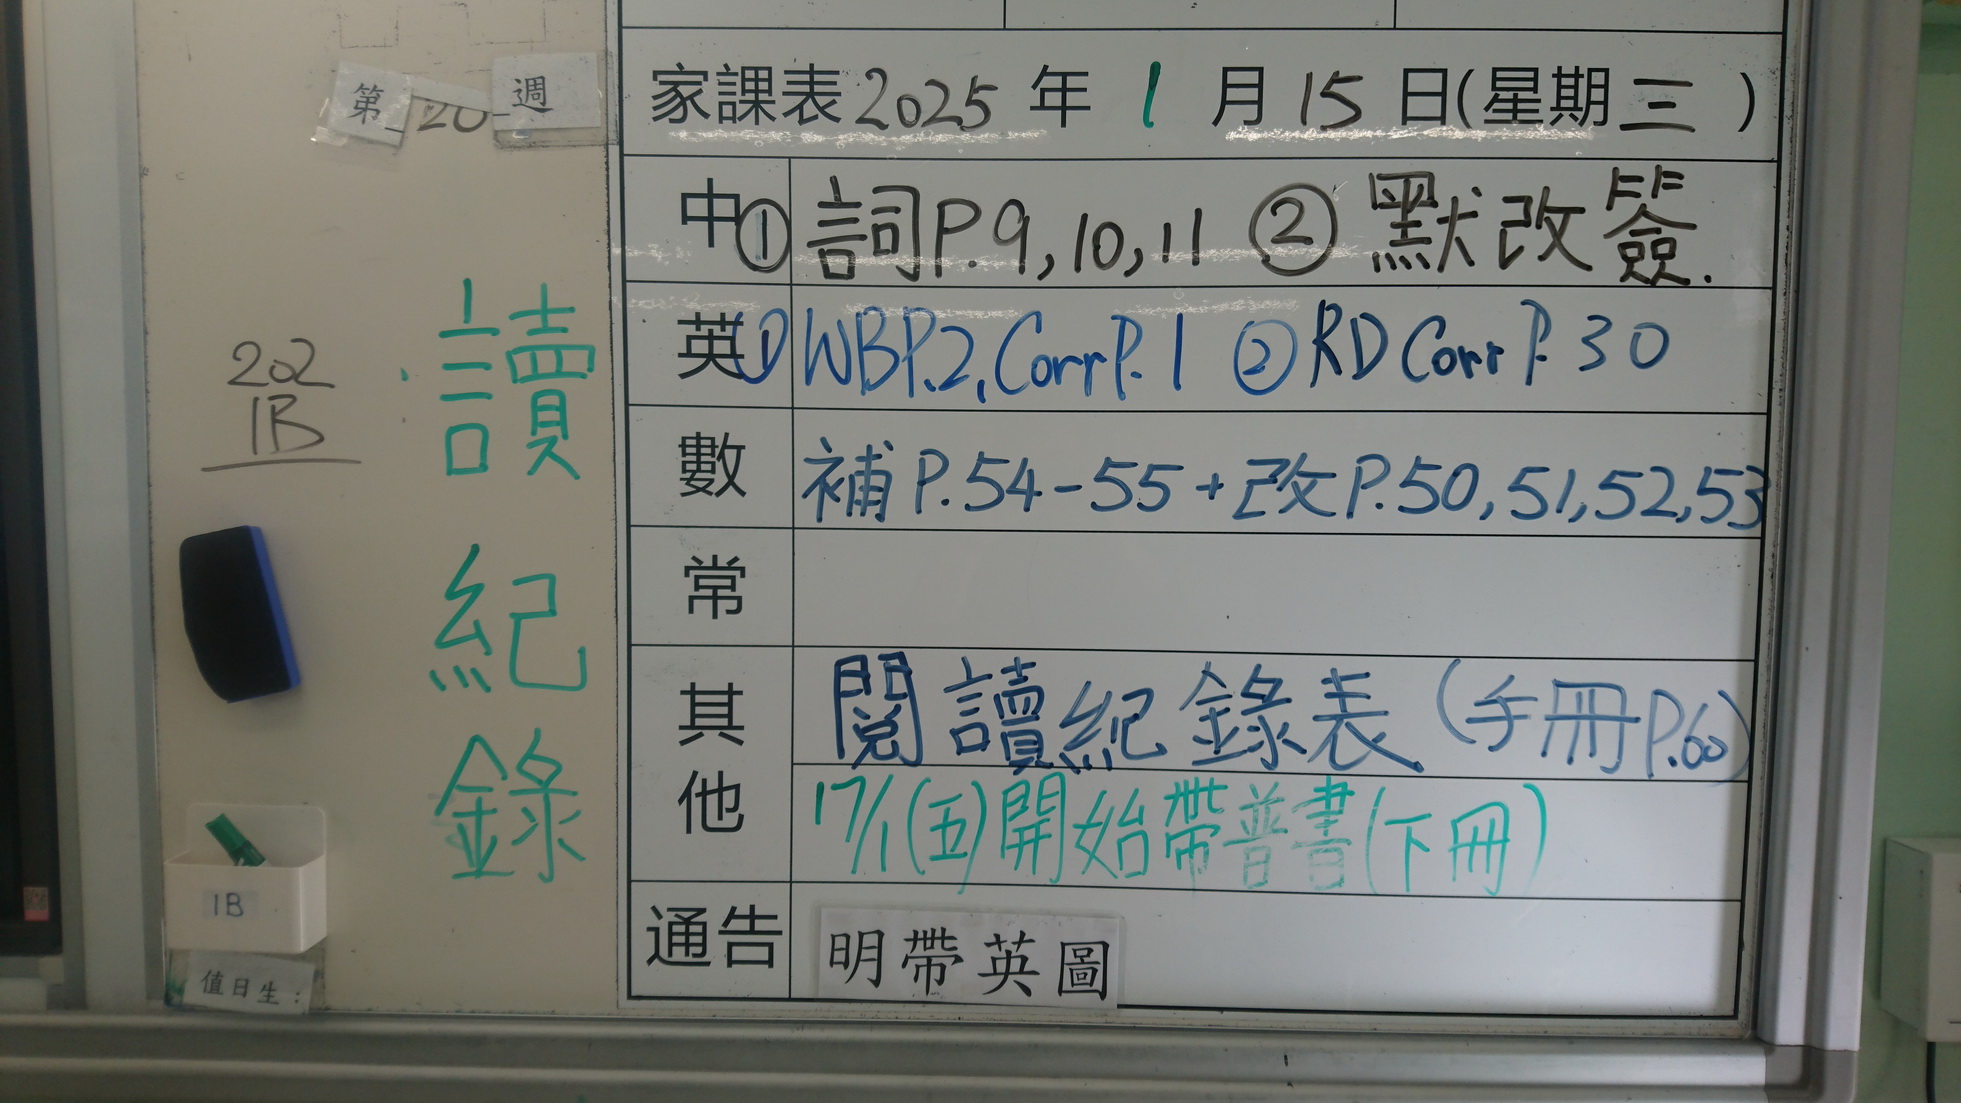 第 20 週
家課表 2025 年 1 月 15 日(星期 三 )
中 ① 詞P.9,10,11 ② 默改簽.
英 ① WBP.2, Corr P.1 ② RD Corr P.30
數 補 P.54-55 + 改P.50,51,52,53
常
其他 閱讀紀錄表 (手冊P.60)
17/1(五)開始帶普書(下冊)
通告 明帶英圖
讀紀錄
202
1B
1B
值日生：